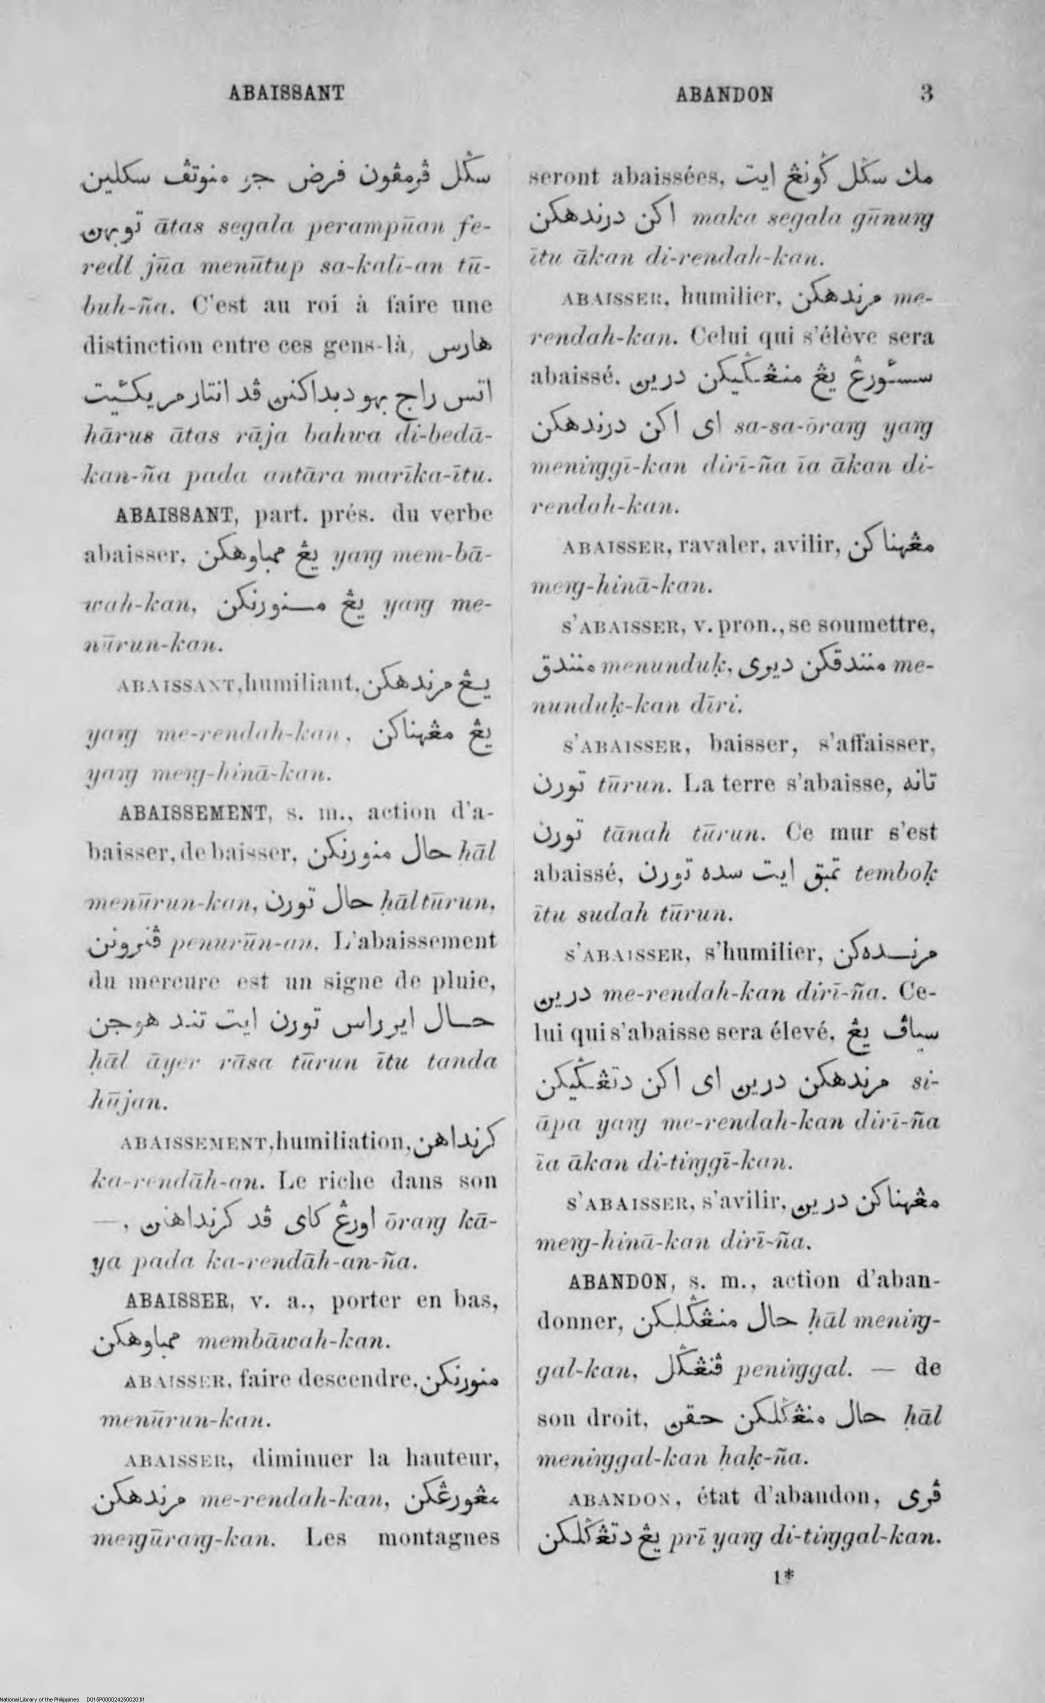 ABAISSANT
سݢل ڤرمڤون فرض جو منوتڤ سكلين
توبهن ātas segala perampūan fe-
redl jūa menūtup sa-kalī-an tū-
buh-ña. C'est au roi à faire une
distinction entre ces gens-là, هارس
اتس راج بهو دبداكنن ڤد انتار مريكئيت
hārus ātas rāja bahwa di-bedā-
kan-ña pada antāra marīka-ītu.
ABAISSANT, part. prés. du verbe
abaisser, يڠ ممباوهكن yaŋ mem-bā-
wah-kan, يڠ منورنكن yaŋ me-
nūrun-kan.
ABAISSANT, humiliant, يڠ مرندهكن
yaŋ me-rendah-kan, يڠ مڠهيناكن
yaŋ meŋ-hinā-kan.
ABAISSEMENT, s. m., action d'a-
baisser, de baisser, حال منورنكن ḥāl
menūrun-kan, حال تورن ḥāl tūrun,
ڤنرونن penurūn-an. L'abaissement
du mercure est un signe de pluie,
حال اير راس تورن ايت تند هوجن
ḥāl āyer rāsa tūrun ītu tanda
hūjan.
ABAISSEMENT, humiliation, كرنداهن
ka-rendāh-an. Le riche dans son
—, اورڠ كاى ڤد كرنداهنن ōraŋ kā-
ya pada ka-rendāh-an-ña.
ABAISSER, v. a., porter en bas,
ممباوهكن membāwah-kan.
ABAISSER, faire descendre, منورنكن
menūrun-kan.
ABAISSER, diminuer la hauteur,
مرندهكن me-rendah-kan, مڠورڠكن
meŋūraŋ-kan. Les montagnes
ABANDON 3
seront abaissées, مك سݢل ݢونڠ ايت
اكن درندهكن maka segala gūnuŋ
ītu ākan di-rendah-kan.
ABAISSER, humilier, مرندهكن me-
rendah-kan. Celui qui s'élève sera
abaissé, سسئورڠ يڠ منڠݢيكن درين
اى اكن درندهكن sa-sa-ōraŋ yaŋ
meniŋgī-kan dirī-ña īa ākan di-
rendah-kan.
ABAISSER, ravaler, avilir, مڠهيناكن
meŋ-hinā-kan.
S'ABAISSER, v. pron., se soumettre,
منندق menunduḳ, منندقكن ديرى me-
nunduḳ-kan dīri.
S'ABAISSER, baisser, s'affaisser,
تورن tūrun. La terre s'abaisse, تانه
تورن tānah tūrun. Ce mur s'est
abaissé, تمبق ايت سده تورن temboḳ
ītu sudah tūrun.
S'ABAISSER, s'humilier, مرندهكن
درين me-rendah-kan dirī-ña. Ce-
lui qui s'abaisse sera élevé, سياڤ يڠ
مرندهكن درين اى اكن دتڠݢيكن si-
āpa yaŋ me-rendah-kan dirī-ña
īa ākan di-tiŋgī-kan.
S'ABAISSER, s'avilir, مڠهيناكن درين
meŋ-hinā-kan dirī-ña.
ABANDON, s. m., action d'aban-
donner, حال منڠݢلكن ḥāl meniŋ-
gal-kan, ڤنڠݢل peniŋgal. — de
son droit, حال منڠݢلكن حقن ḥāl
meniŋgal-kan ḥaḳ-ña.
ABANDON, état d'abandon, ڤرى
يڠ دتڠݢلكن prī yaŋ di-tiŋgal-kan.
1*
National Library of the Philippines